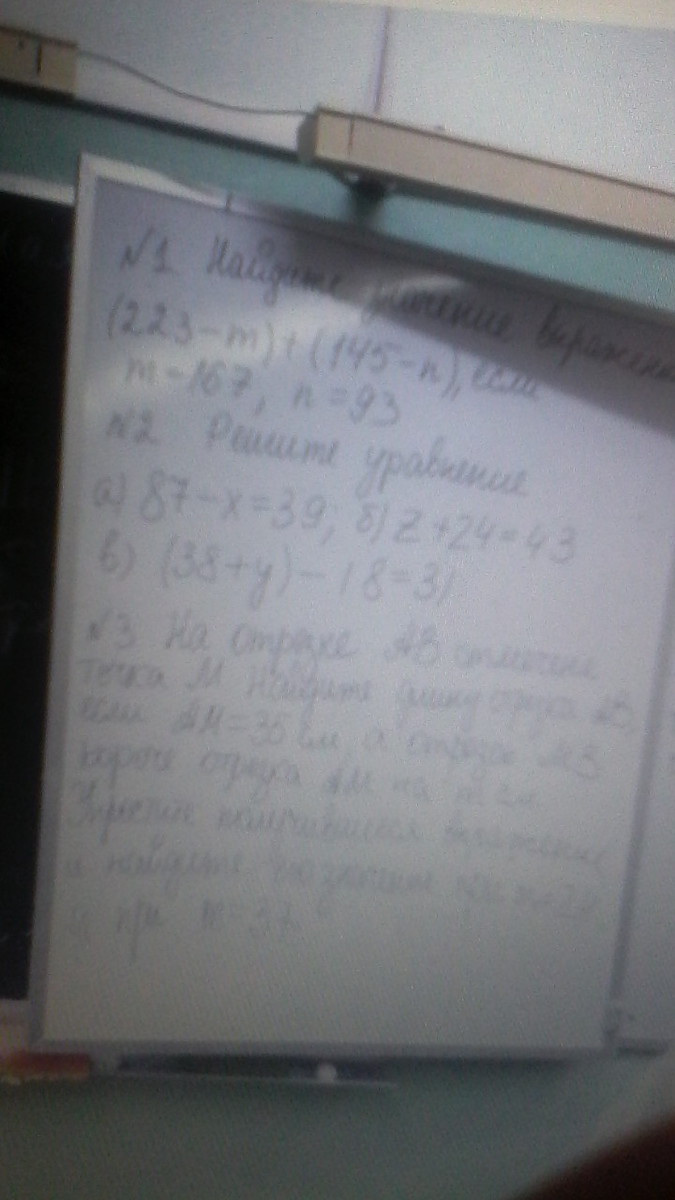 №1 Найдите значение выражени
(223-m)+(145-n), если
m-167, n=93
№2 Решите уравнение
а) 87-x=39; б) z+24=43
в) (38+y)-18=31
№3 На отрезке AB отмечена
точка M Найдите длину отрезка AB
если AM=35 см а отрезок MB
короче отрезка AM на m см
Упростите получившееся выражение
и найдите его значение при
и при m=37